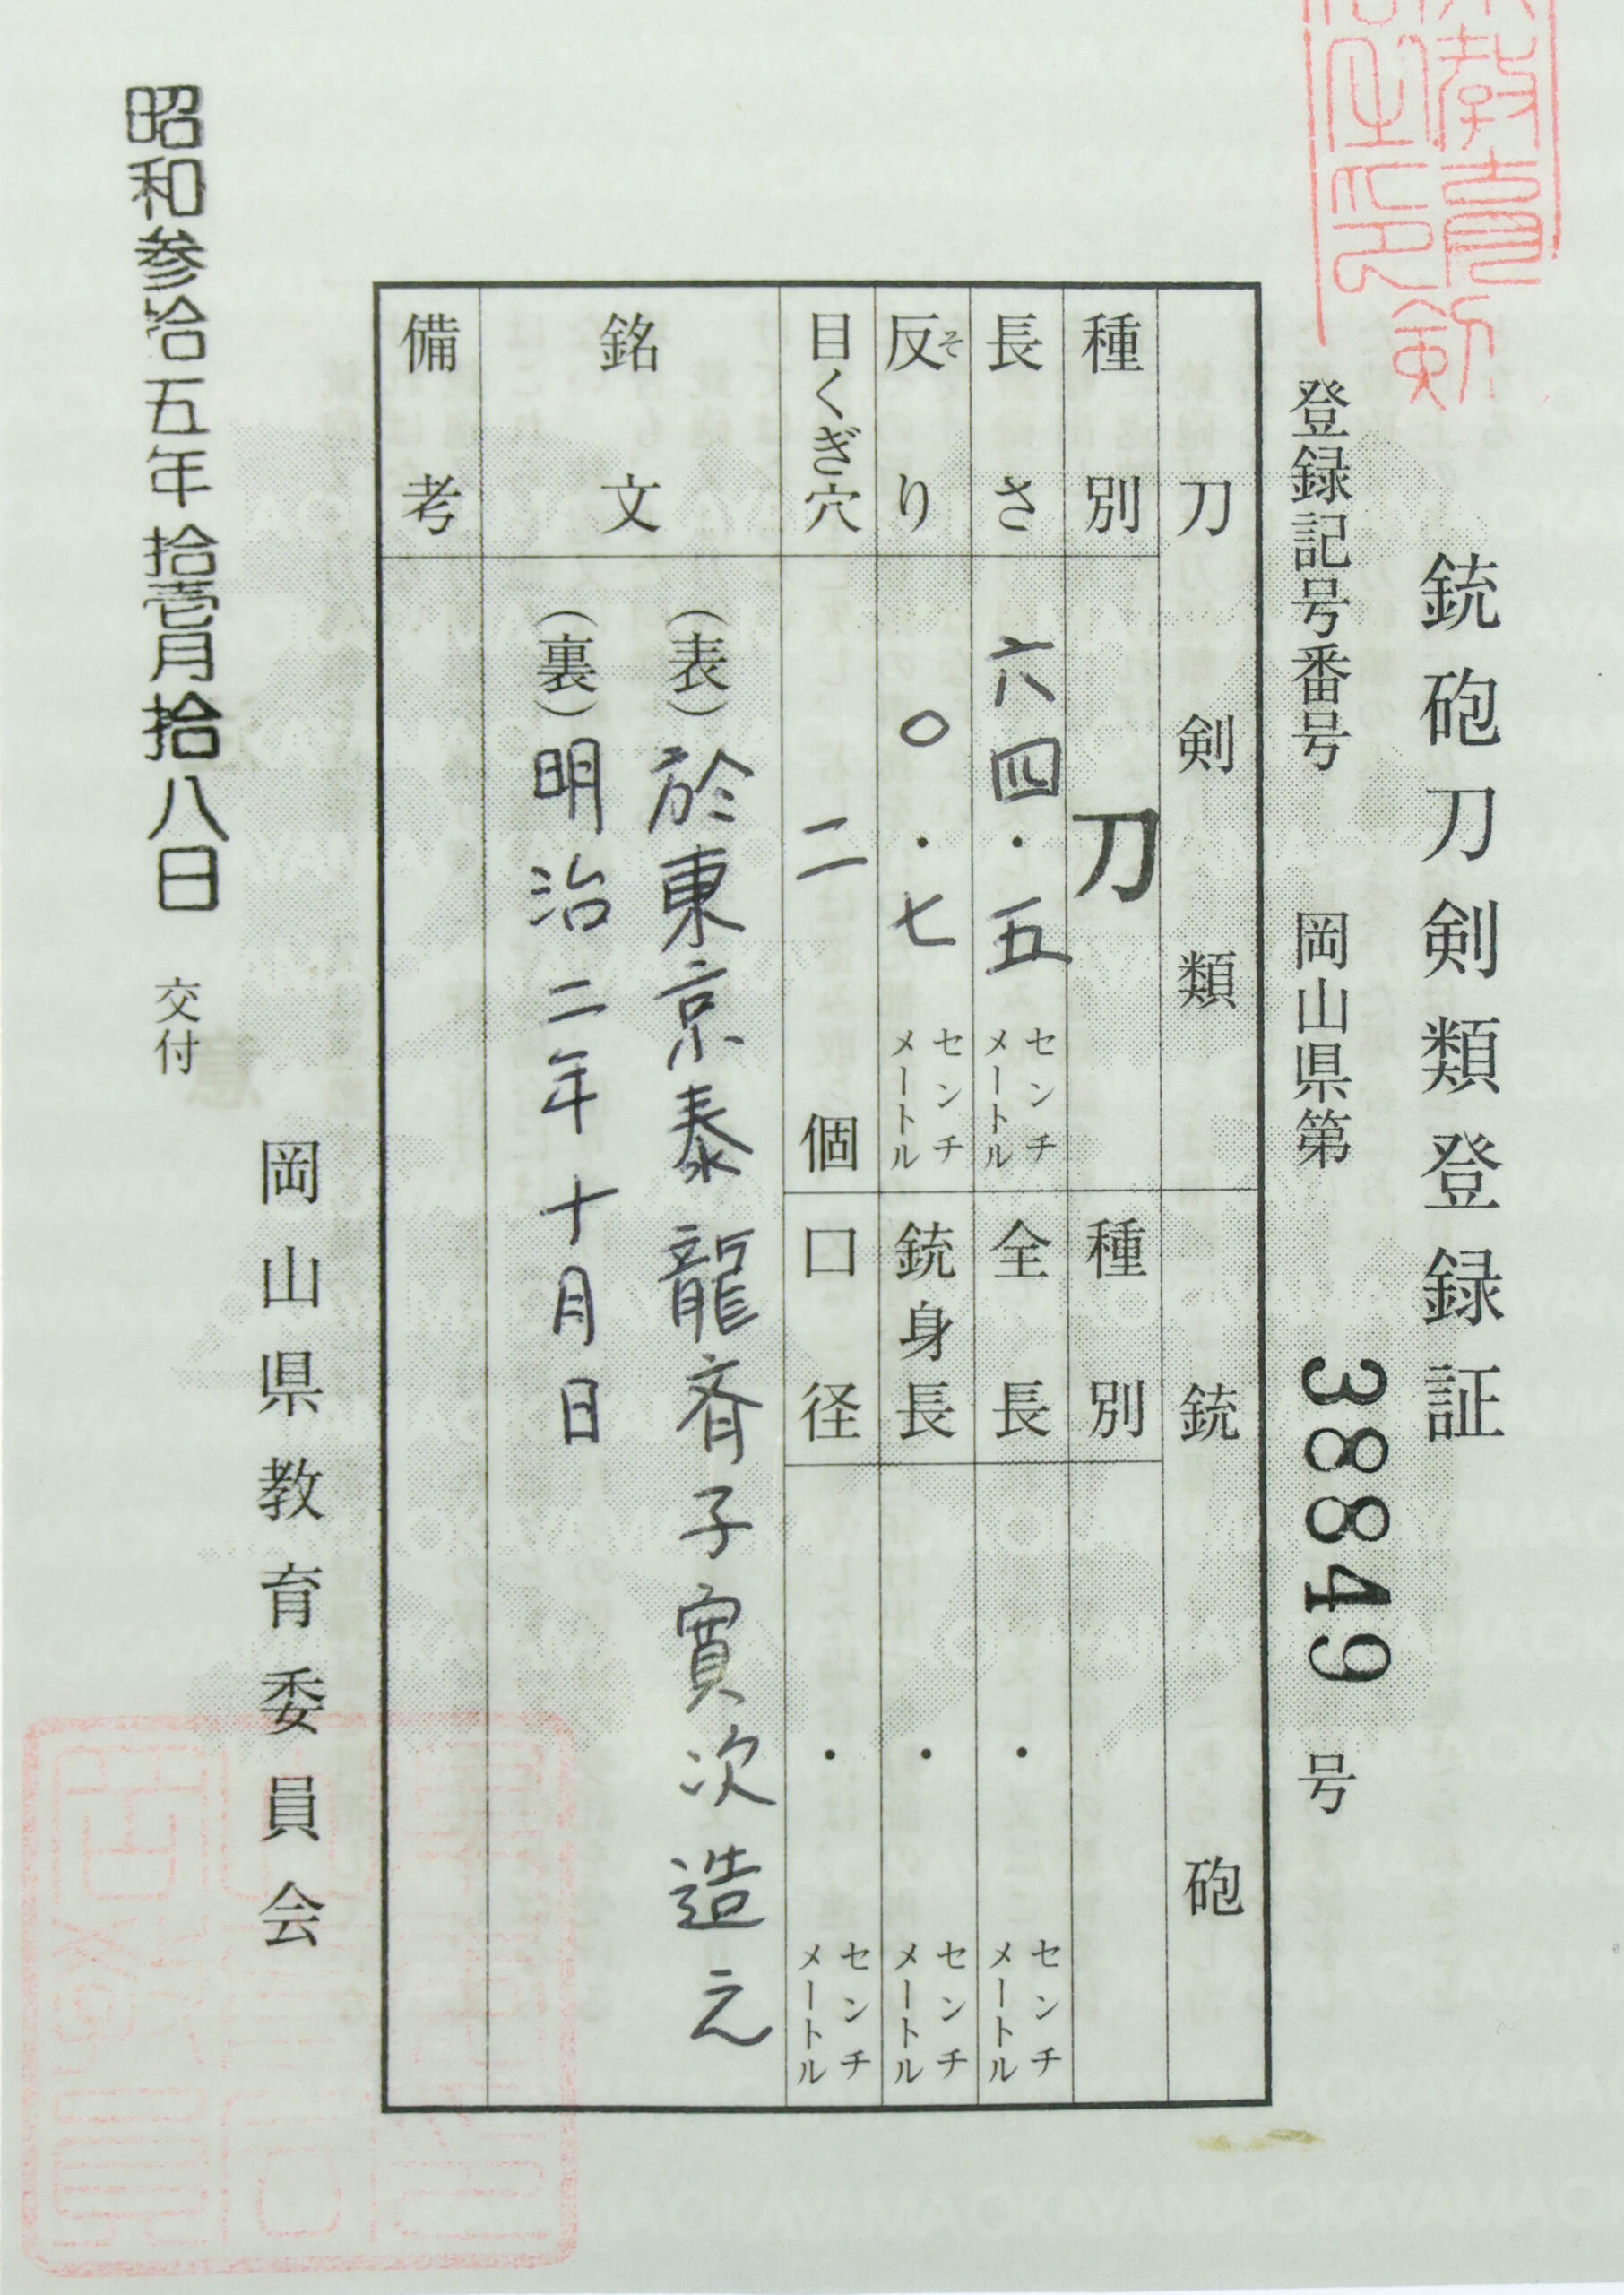 銃砲刀剣類登録証
登録記号番号 岡山県第 38849 号
刀剣類 銃砲
種別 刀 種別
長さ 六四・五 センチメートル 全長 ・ センチメートル
反り そ 〇・七 センチメートル 銃身長 ・ センチメートル
目くぎ穴 二 個 口径 ・ センチメートル
銘文 (表)於東京泰龍斉子實次造之
(裏)明治二年十月日
備考
岡山県教育委員会
昭和参拾五年拾壱月拾八日 交付